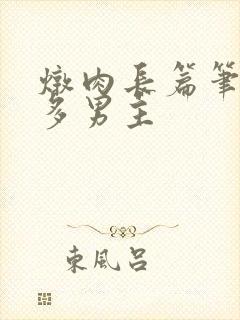 燉肉長篇筆
多男主
東風呂